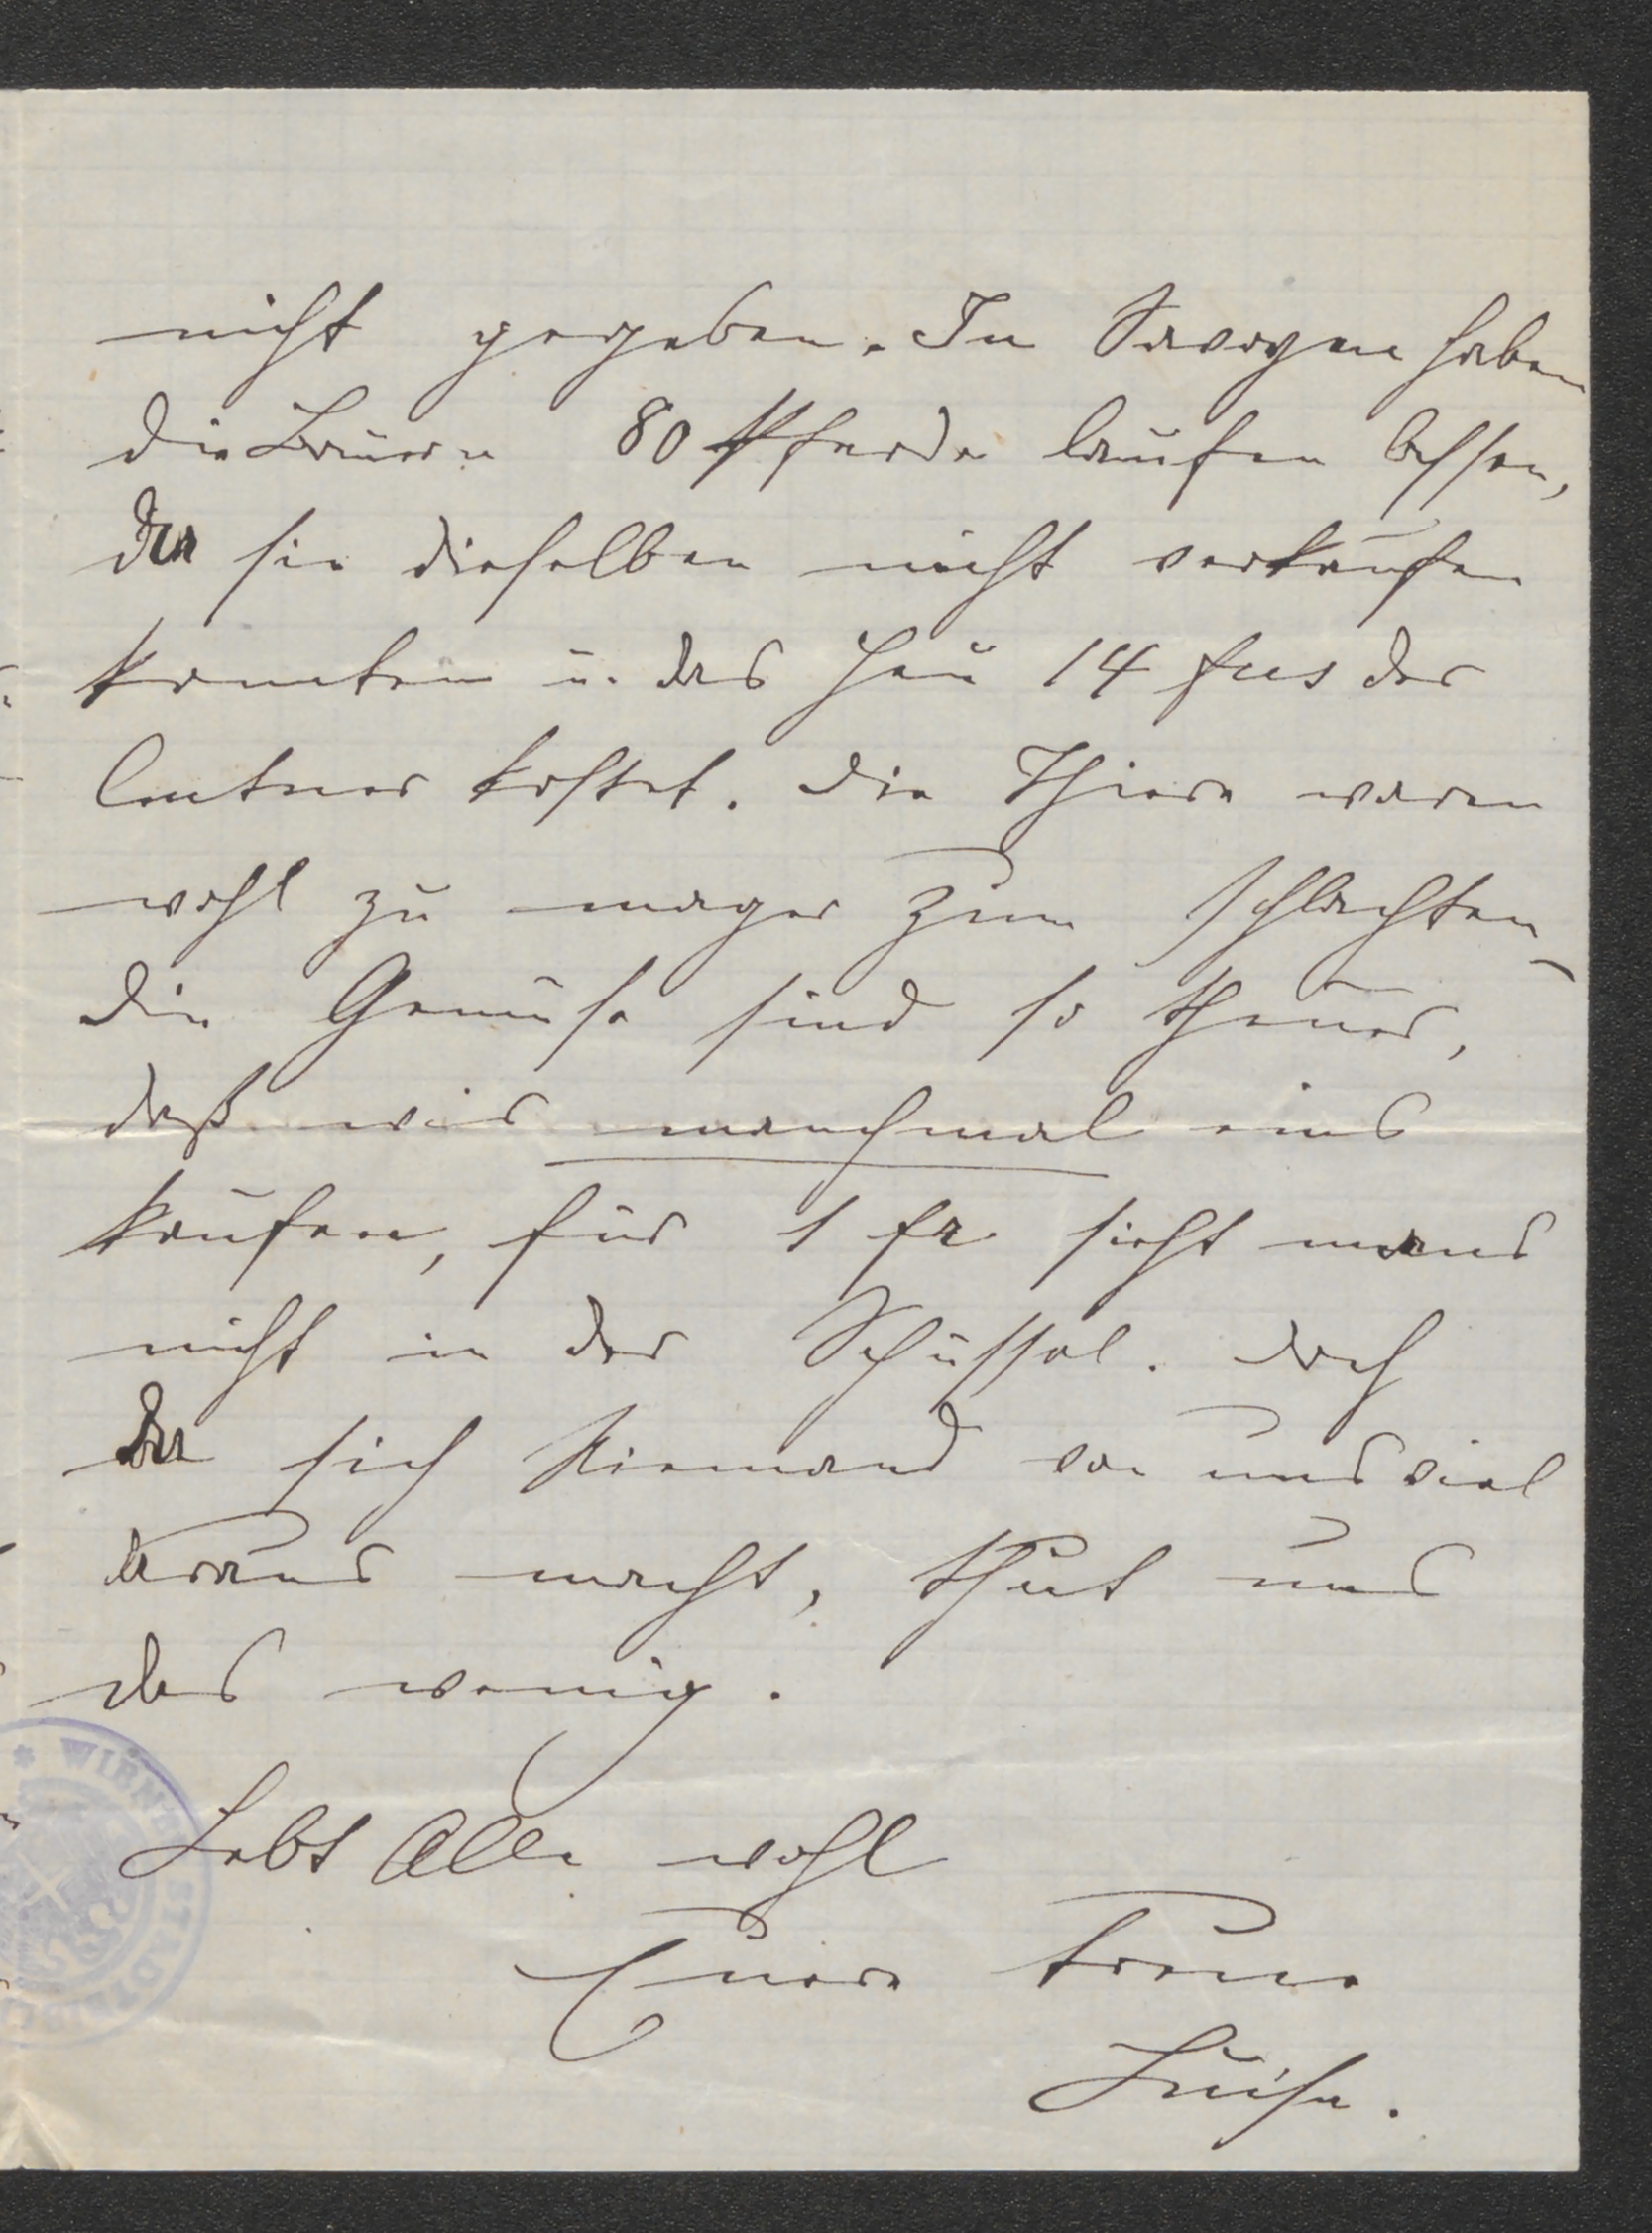 nicht gegeben. In Savoyen haben
die Bauern 80 Pferde laufen lassen,
da sie dieselben nicht verkaufen
konnten u. das Heu 14 frcs der
Centner kostet. Die Thiere waren
wohl zu mager zum schlachten –
die Gemüse sind so theuer,
daß wir manchmal eins
kaufen, für 1 fr sieht mans
nicht in der Schüssel. Doch
da sich Niemand von uns viel
draus macht, thut uns
das wenig.
Lebt Alle wohl
Euere treue
Luise.
WIENER STADTBIBL